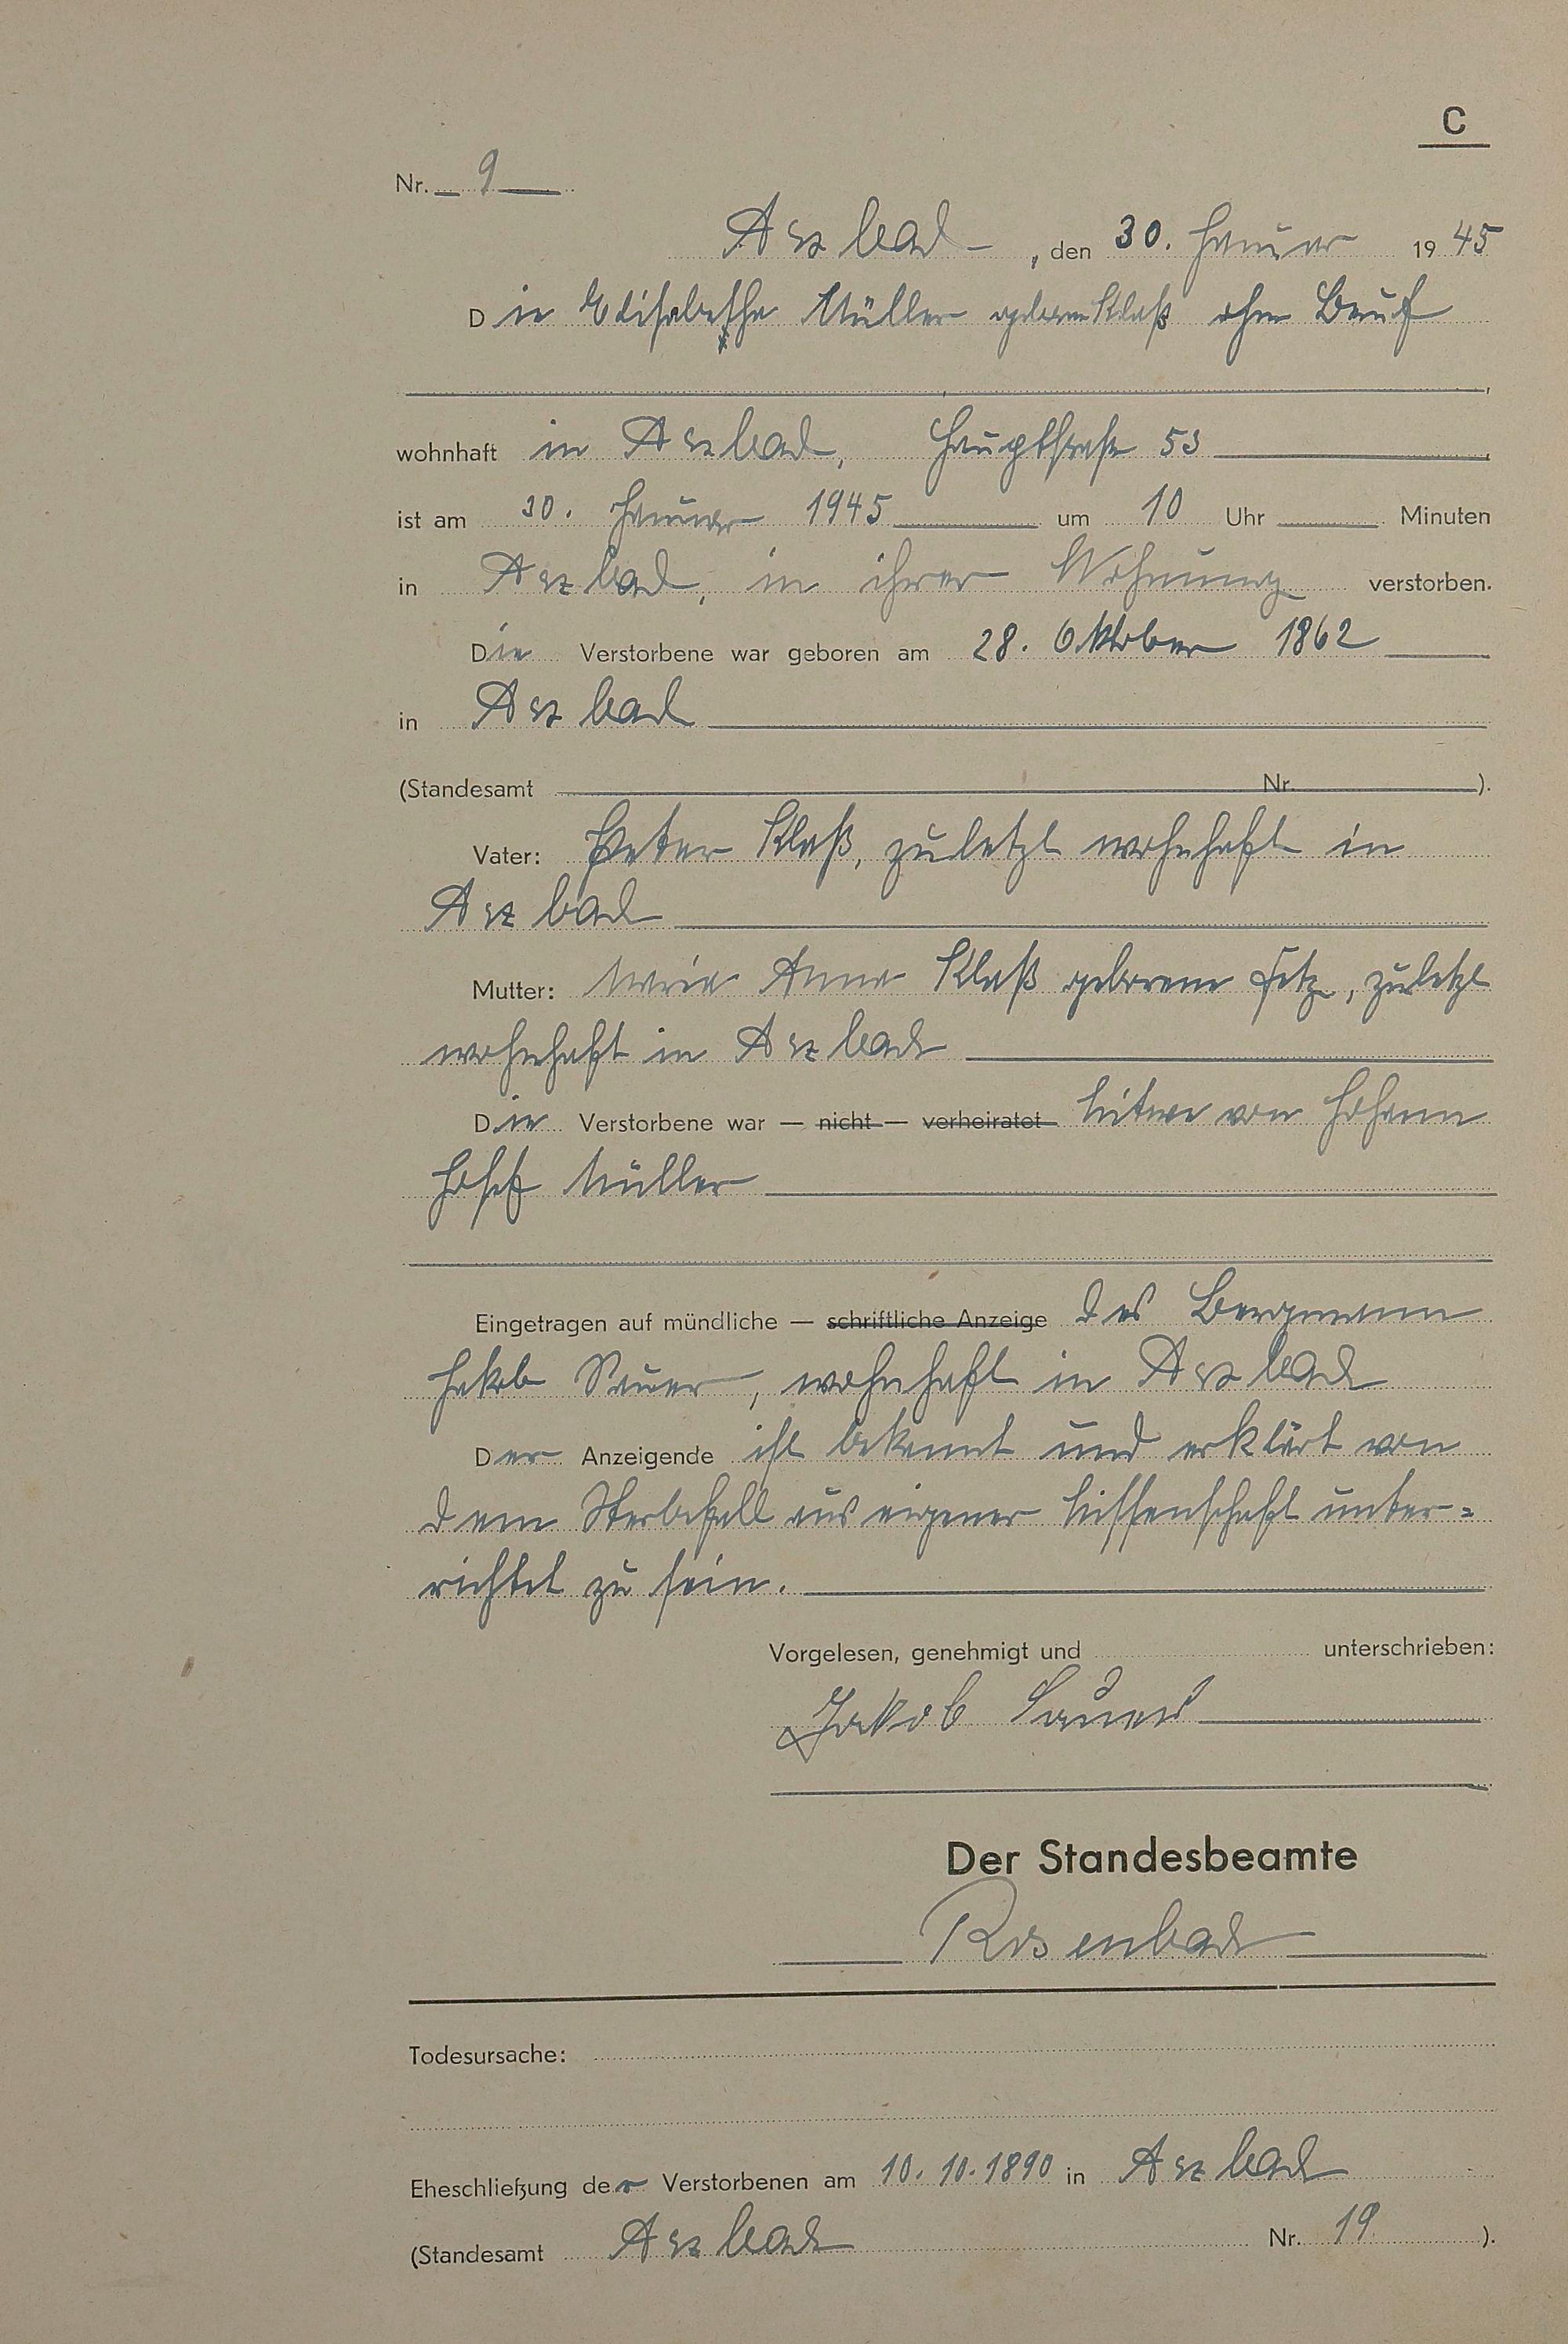 C
Nr. 9
Arzbach, den 30. Januar 1945
Die Elisabetha Müller geborene Klaß ohne Beruf
wohnhaft in Arzbach, Hauptstraße 53
ist am 30. Januar 1945 um 10 Uhr Minuten
in Arzbach, in ihrer Wohnung verstorben.
Die Verstorbene war geboren am 28. Oktober 1862
in Arzbach
(Standesamt Nr. ).
Vater: Peter Klaß, zuletzt wohnhaft in
Arzbach
Mutter: Maria Anna Klaß geborene , zuletzt
wohnhaft in Arzbach
Die Verstorbene war — nicht — verheiratet Witwe von Johann
Josef Müller
Eingetragen auf mündliche — schriftliche Anzeige des Bergmann
Jakob Sauer, wohnhaft in Arzbach
Der Anzeigende ist bekannt und erklärt von
dem Sterbefall aus eigener Wissenschaft unter=
richtet zu sein.
Vorgelesen, genehmigt und unterschrieben:
Jakob Sauer
Der Standesbeamte
Rosenbach
Todesursache:
Eheschließung der Verstorbenen am 10.10.1890 in Arzbach
(Standesamt Arzbach Nr. 19 ).